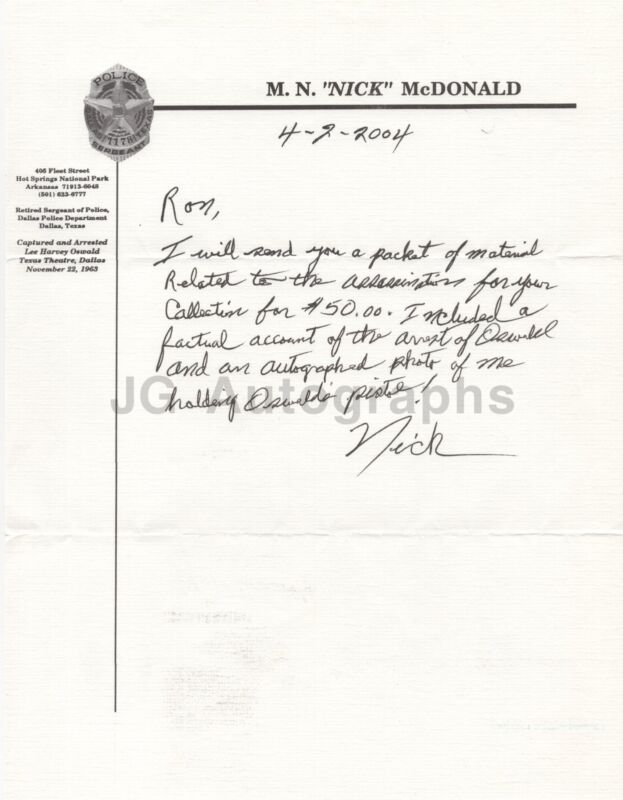 POLICE
1178
SERGEANT
M. N. "NICK" McDONALD
4-2-2004
405 Fleet Street
Hot Springs National Park
Arkansas 71913-6048
(501) 623-6777
Retired Sergeant of Police,
Dallas Police Department
Dallas, Texas
Captured and Arrested
Lee Harvey Oswald
Texas Theatre, Dallas
November 22, 1963
Ron,
I will send you a packet of material
Related to the assassination for your
Collection for $50.00. Included a
factual account of the arrest of Oswald
and an autographed photo of me
holding Oswald's pistol!
JG Autographs
Nick